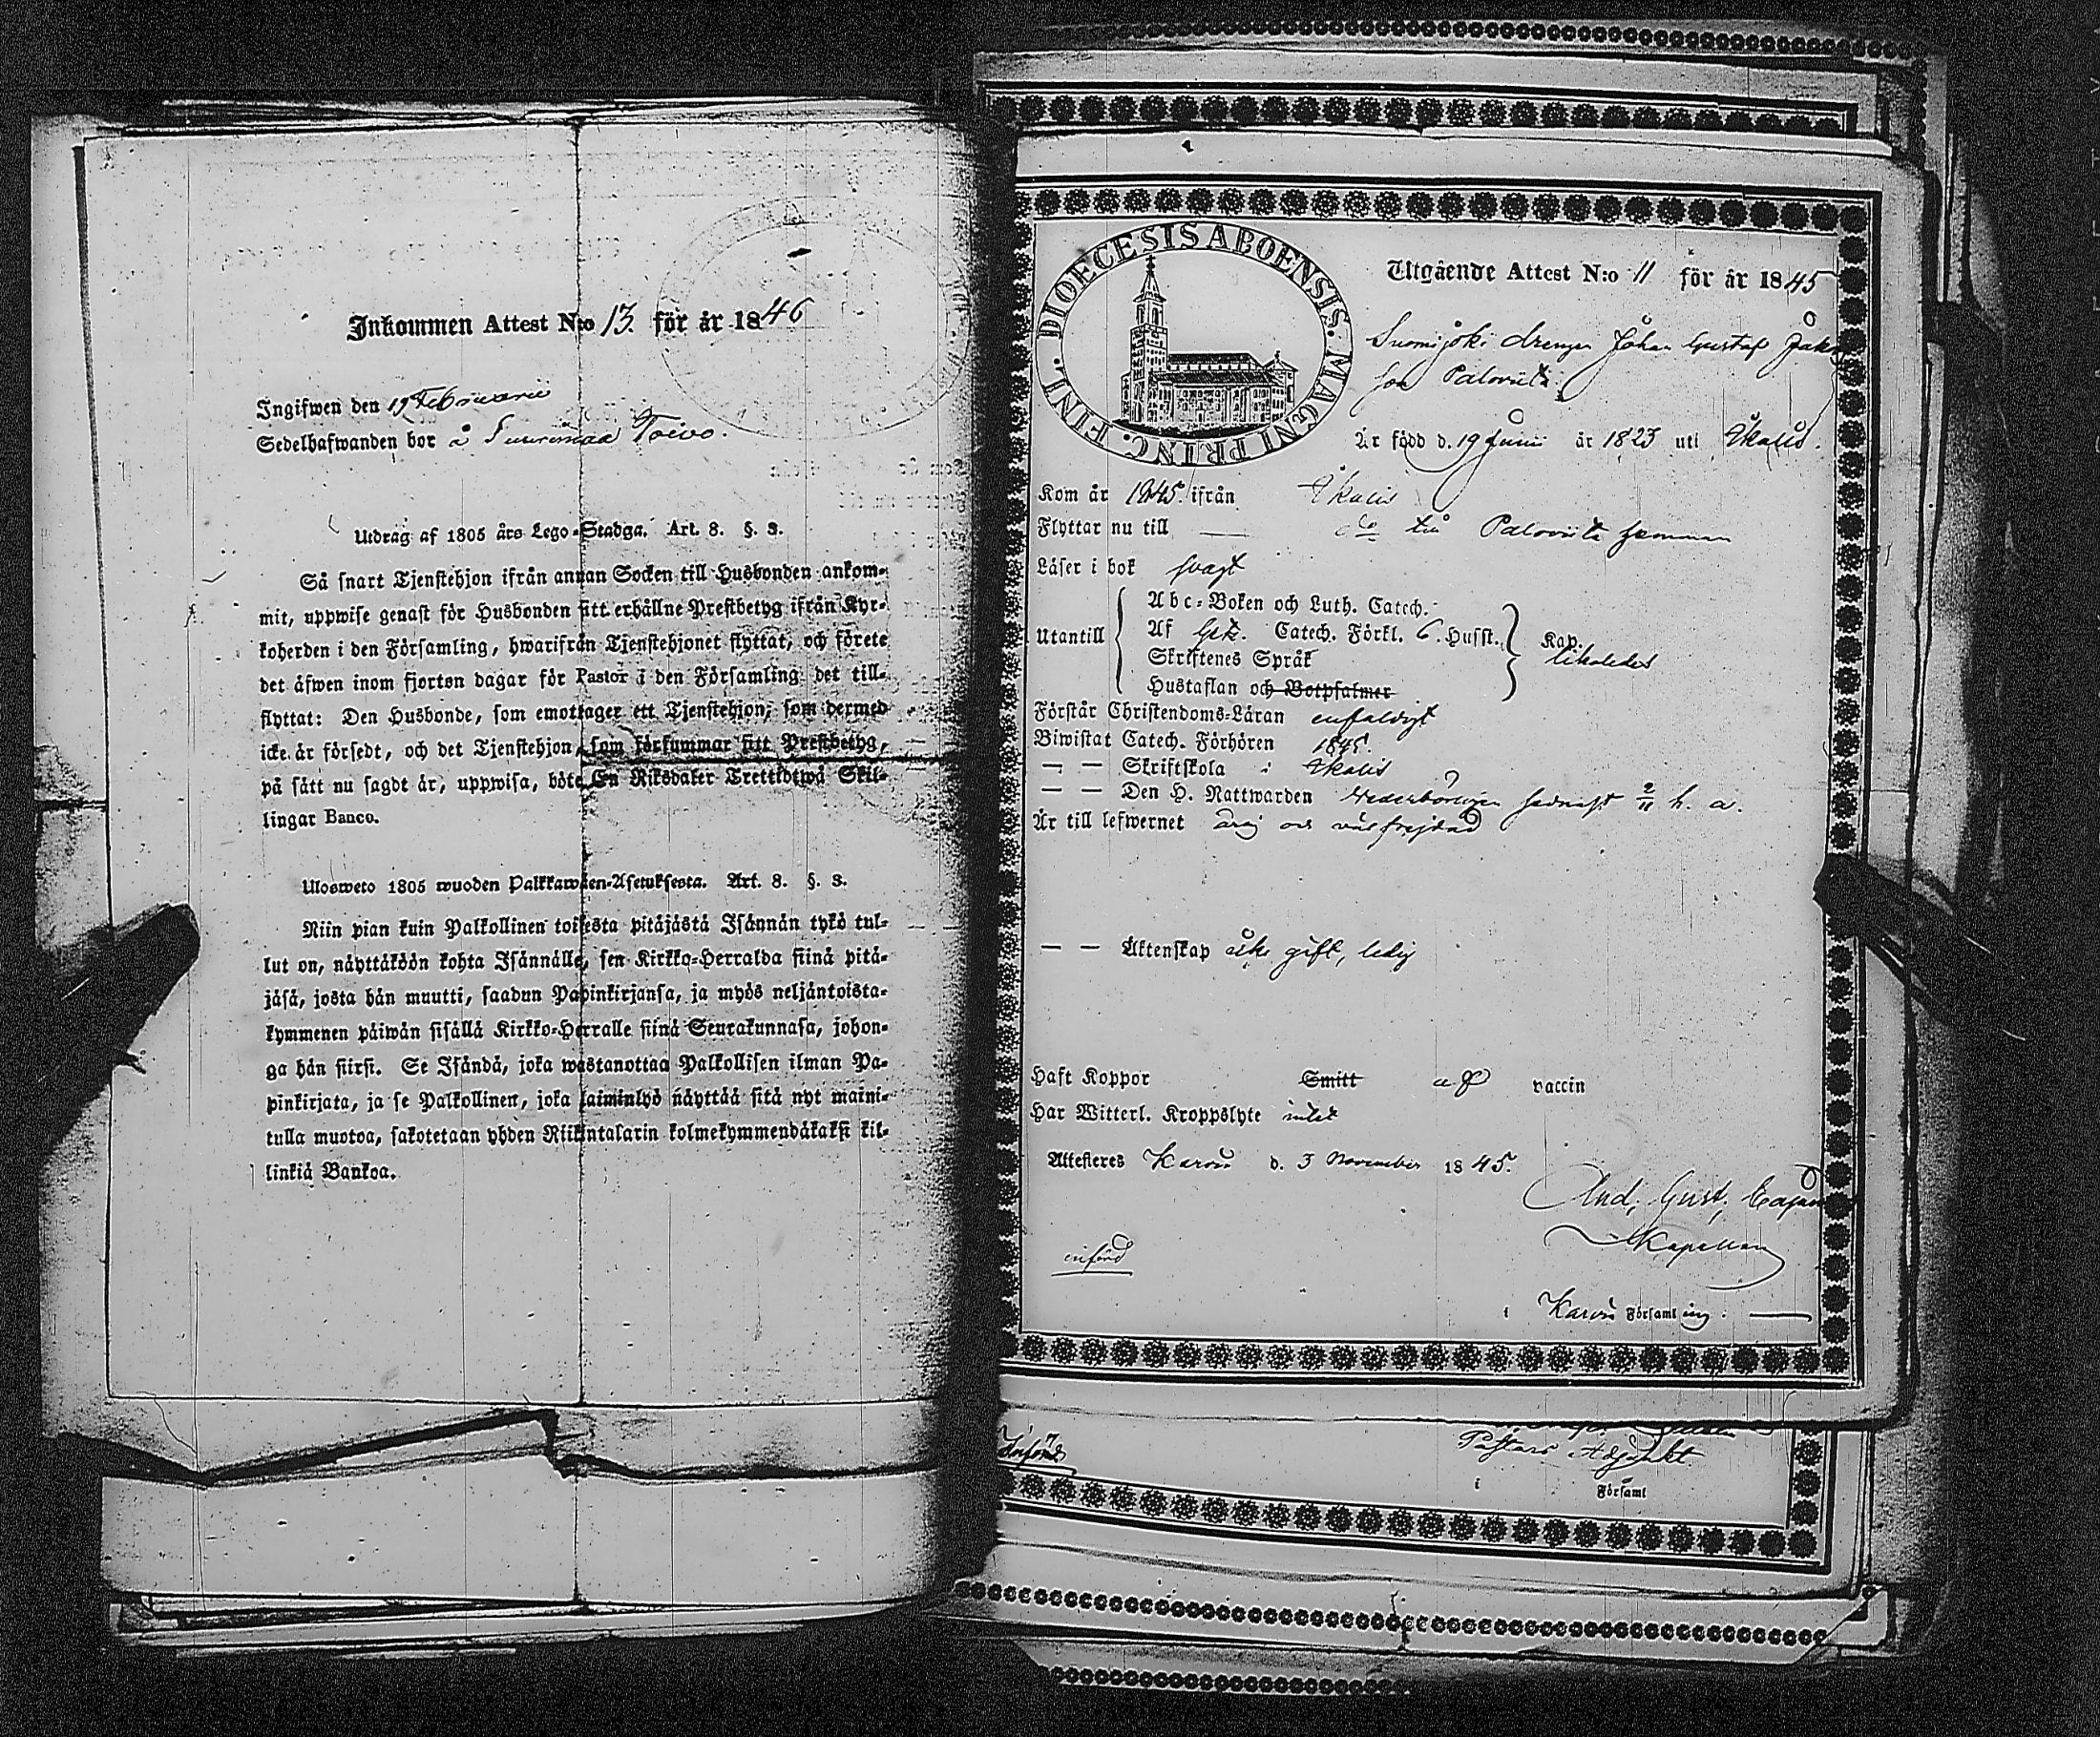 Inkommen Attest N:o 13. för år 1846
Ingifwen den 19 Februarii
Sedelhafwanden bor å Suurimaa Toivo.
Utdrag af 1805 års Lego-Stadga. Art. 8. §. 3.
Så snart Tjenstehjon ifrån annan Socken till Husbonden ankom-
mit, uppwise genast för Husbonden sitt erhållne Prestbetyg ifrån Kyr-
koherden i den Församling, hwarifrån Tjenstehjonet flyttat, och förete
det äfwen inom fjorton dagar för Pastor i den Församling det till-
flyttat: Den Husbonde, som emottager ett Tjenstehjon, som dermed
icke är försedt, och det Tjenstehjon, som försummar sitt Prestbetyg,
på sätt nu sagdt är, uppwisa, böte En Riksdaler Trettiotwå Skil-
lingar Banco.
Ulosweto 1805 wuoden Palkkawäen-Asetuksesta. Art. 8. §. 3.
Niin pian kuin Palkollinen toisesta pitäjästä Isännän tykö tul-
lut on, näyttäköön kohta Isännälle, sen Kirkko-Herralda siinä pitä-
jäsä, josta hän muutti, saadun Papinkirjansa, ja myös neljäntoista-
kymmenen päiwän sisällä Kirkko-Herralle siinä Seurakunnasa, johon-
ga hän siirsi. Se Isändä, joka wastanottaa Palkollisen ilman Pa-
pinkirjata, ja se Palkollinen, joka laiminlyö näyttää sitä nyt maini-
tulla muotoa, sakotetaan yhden Riikintalarin kolmekymmendäkaksi kil-
linkiä Bankoa.
DIOECESIS ABOENSIS. MAGNI PRINC. FINL.
Utgående Attest N:o 11 för år 1845
Suomijoki drengen Johan Gustaf
son Paloviita
Är född d. 19 Junii år 1823 uti Ikalis.
Kom år 1845. ifrån Ikalis
Flyttar nu till — do till Paloviita hemman
Läser i bok svagt
Utantill
Abc-Boken och Luth. Catech.
Af Catech. Förkl. 6. Husst.
Skriftenes Språk
Hustaflan och Botpsalmer
Kap.
likaledes
Förstår Christendoms-Läran enfaldigt
Biwistat Catech. Förhören 1845.
— — Skriftskola i Ikalis
— — Den H. Nattwarden wederbörligen sednast 2/11 h. a.
Är till lefwernet ärlig och väl frejdad
— — Äktenskap icke gift, ledig
Haft Koppor Smitt af vaccin
Har Witterl. Kroppslyte intet
Attesteres Karvia d. 3 November 1845.
And. Gust.
Kapellan
införd
i Karvia Församling. —
Införd
Pastors Adjunkt
i Församl